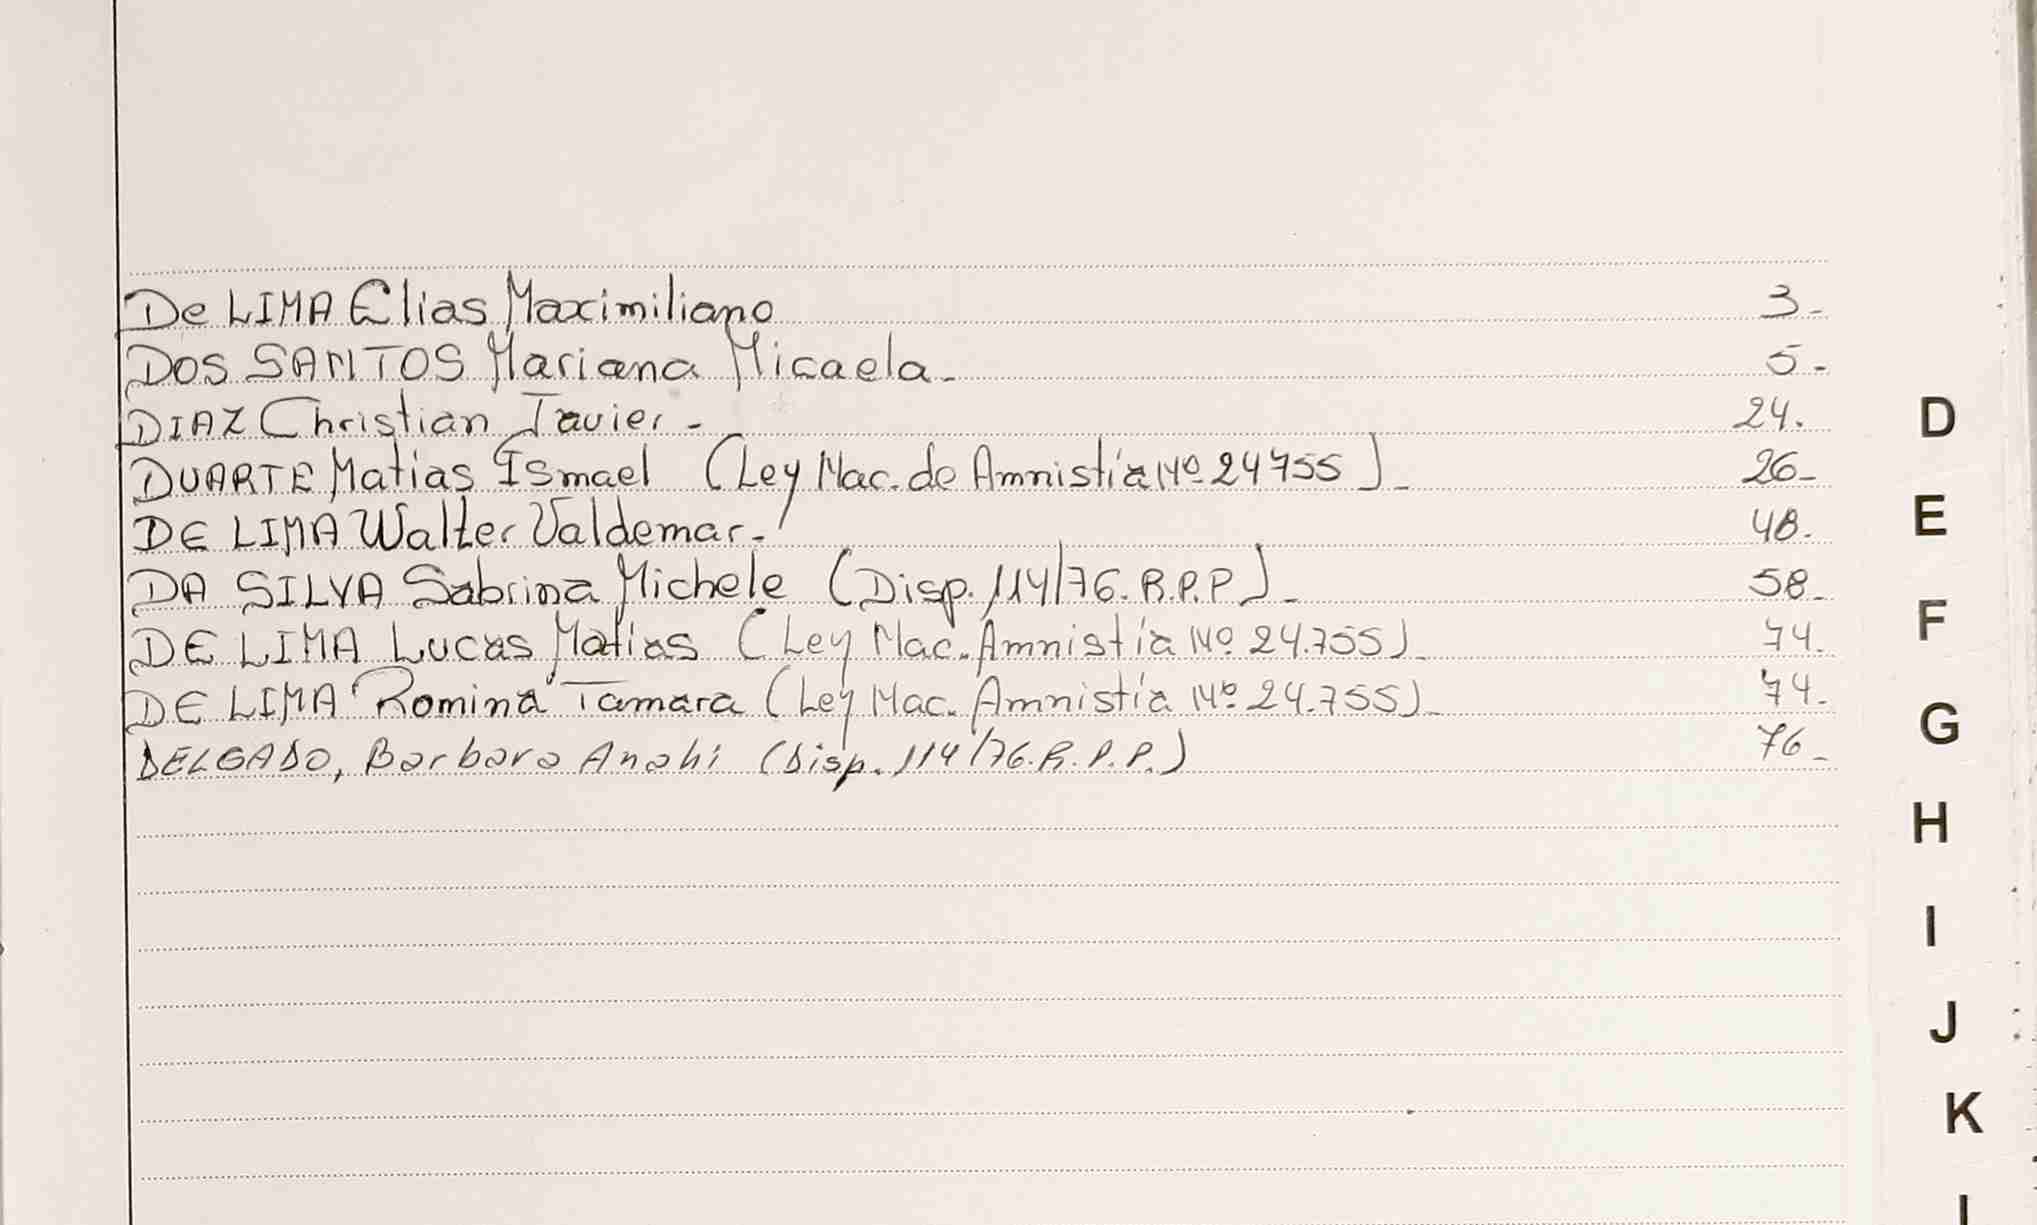 De LIMA Elias Maximiliano 3-
DOS SANTOS Mariana Micaela- 5-
DIAZ Christian Javier- 24.
DUARTE Matias Ismael (Ley Nac. de Amnistía Nº 24755)- 26-
DE LIMA Walter Valdemar- 48.
DA SILVA Sabrina Michele (Disp. 114/76. R.P.P)- 58-
DE LIMA Lucas Matias (Ley Nac. Amnistía Nº 24.755)- 74.
DE LIMA Romina Tamara (Ley Nac. Amnistía Nº 24.755)- 74.
DELGADO, Barbara Anahi (Disp. 114/76. R.P.P.) 76-
D
E
F
G
H
I
J
K